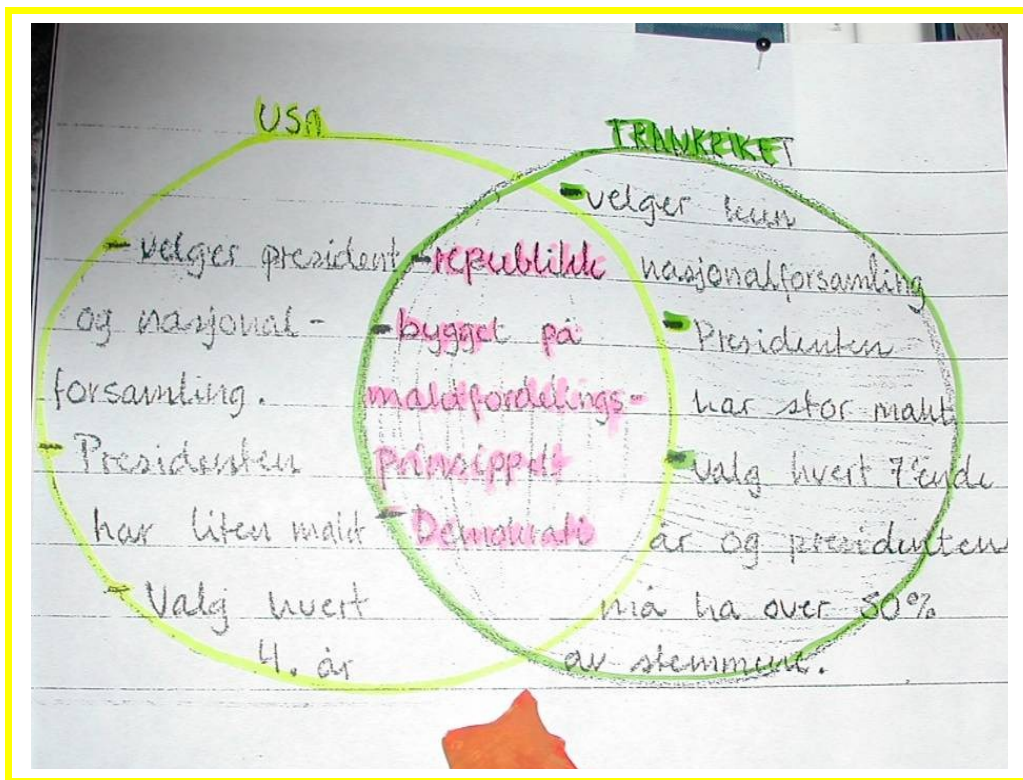 USA
FRANKRIKET
- velger president
og nasjonal-
forsamling.
- Presidenten
har liten makt
- Valg hvert
4. år
- republikk
- bygget på
maktfordelings-
prinsippet
- Demokrati
- velger kun
nasjonalforsamling
- Presidenten
har stor makt
- Valg hvert 7'ende
år og presidenten
må ha over 50%
av stemmene.